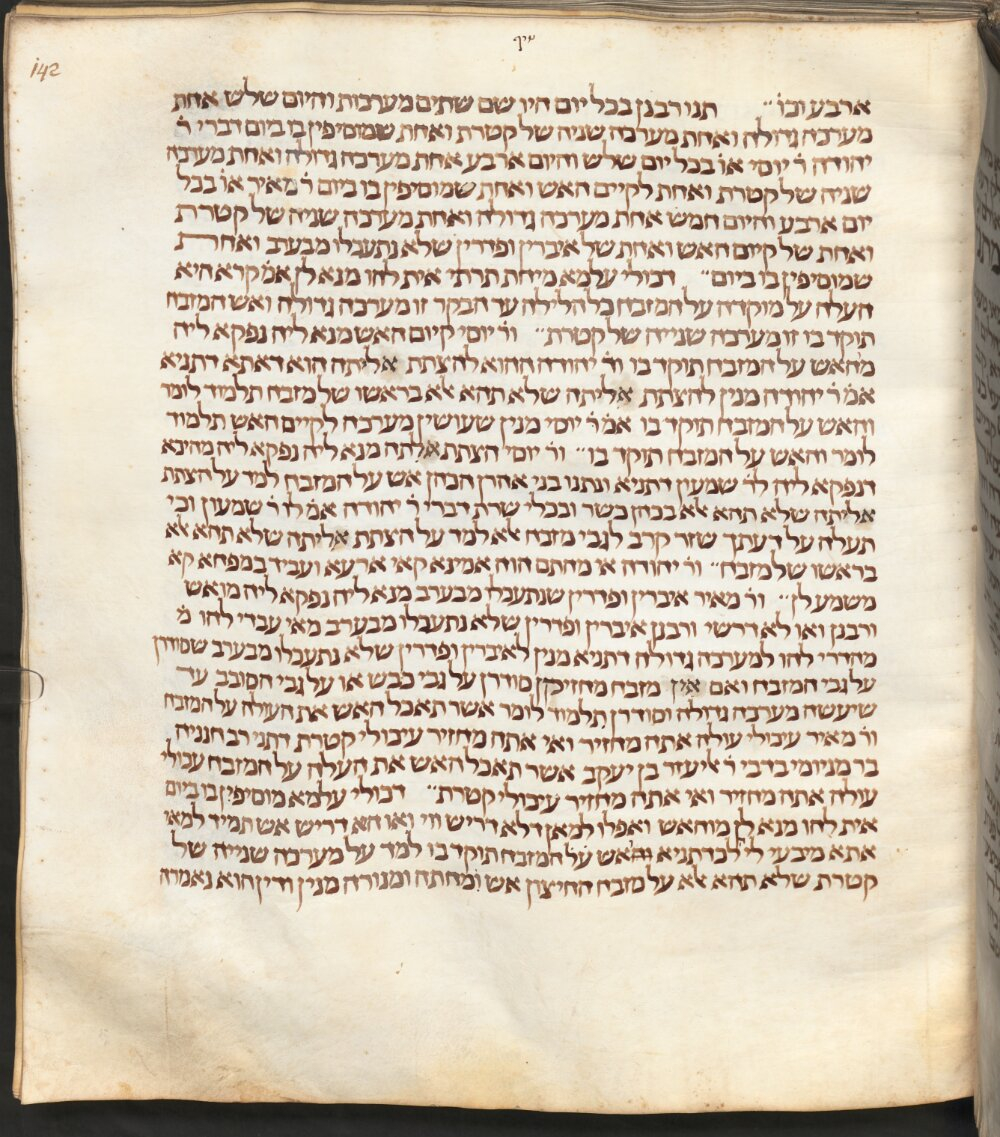 142
ארבע וכו׳ תנו רבנן בכל יום היו שם שתים מערכות והיום שלש אחת
מערכה גדולה ואחת מערכה שניה של קטרת ואחת שמוסיפין בו ביום דברי ר׳
יהודה ר׳ יוסי או׳ בכל יום שלש והיום ארבע אחת מערכה גדולה ואחת מערכה
שניה של קטרת ואחת לקיים האש ואחת שמוסיפין בו ביום ר׳ מאיר או׳ בכל
יום ארבע והיום חמש אחת מערכה גדולה ואחת מערכה שניה של קטרת
ואחת של קיום האש ואחת של איברין ופדרין שלא נתעכלו מבערב ואחרת
שמוסיפין בו ביום ״ דכולי עלמא מיהת תרתי אית להו מנא לן אמ׳ קרא היא
העלה על מוקדה על המזבח כל הלילה עד הבקר זו מערכה גדולה ואש המזבח
תוקד בו זו מערכה שנייה של קטרת ״ ור׳ יוסי קיום האש מנא ליה נפקא ליה
מהאש על המזבח תוקד בו ור׳ יהודה ההוא להצתת אליתה הוא דאתא דתניא
אמ׳ ר׳ יהודה מנין להצתת אליתה שלא תהא אלא בראשו של מזבח תלמוד לומר
והאש על המזבח תוקד בו אמ׳ ר׳ יוסי מנין שעושין מערכה לקיים האש תלמוד
לומר והאש על המזבח תוקד בו ״ ור׳ יוסי הצתת אלתה מנא ליה נפקא ליה מהיכא
דנפקא ליה לר׳ שמעון דתניא ונתנו בני אהרן הכהן אש על המזבח למד על הצתת
אליתה שלא תהא אלא בכהן כשר ובכלי שרת דברי ר׳ יהודה אמ׳ לו ר׳ שמעון וכי
תעלה על דעתך שזר קרב לגבי מזבח אלא למד על הצתת אליתה שלא תהא אלא
בראשו של מזבח ״ ור׳ יהודה או מהתם הוה אמינא קאי ארעא ועביד במפחא קא
משמע לן ״ ור׳ מאיר איברין ופדרין שנתעכלו מבערב מנא ליה נפקא ליה מואש
ורבנן ואו לא דרשי ורבנן איברין ופדרין שלא נתעכלו מבערב מאי עבדי להו מ׳
מהדרי להו למערכה גדולה דתניא מנין לאיברין ופדרין שלא נתעכלו מבערב שסודרן
על גבי המזבח ואם אין מזבח מחזיקן סודרן על גבי כבש או על גבי הסובב עד
שיעשה מערכה גדולה וסודרן תלמוד לומר אשר תאכל האש את העולה על המזבח
ור׳ מאיר עיכולי עולה אתה מחזיר ואי אתה מחזיר עיכולי קטרת דתני רב חנניה
בר מניומי בדבי ר׳ אליעזר בן יעקב אשר תאכל האש את העלה על המזבח עכולי
עולה אתה מחזיר ואי אתה מחזיר עיכולי קטרת ״ דכולי עלמא מוסיפין בו ביום
אית להו מנא לן מוהאש ואפלו למאן דלא דריש ווי ואו הא דריש אש תמיד למאי
אתא מיבעי לי׳ לכדתניא אש על המזבח תוקד בו למד על מערכה שנייה של
קטרת שלא תהא אלא על מזבח החיצון אש ומחתה ומנורה מנין ודין הוא נאמרה